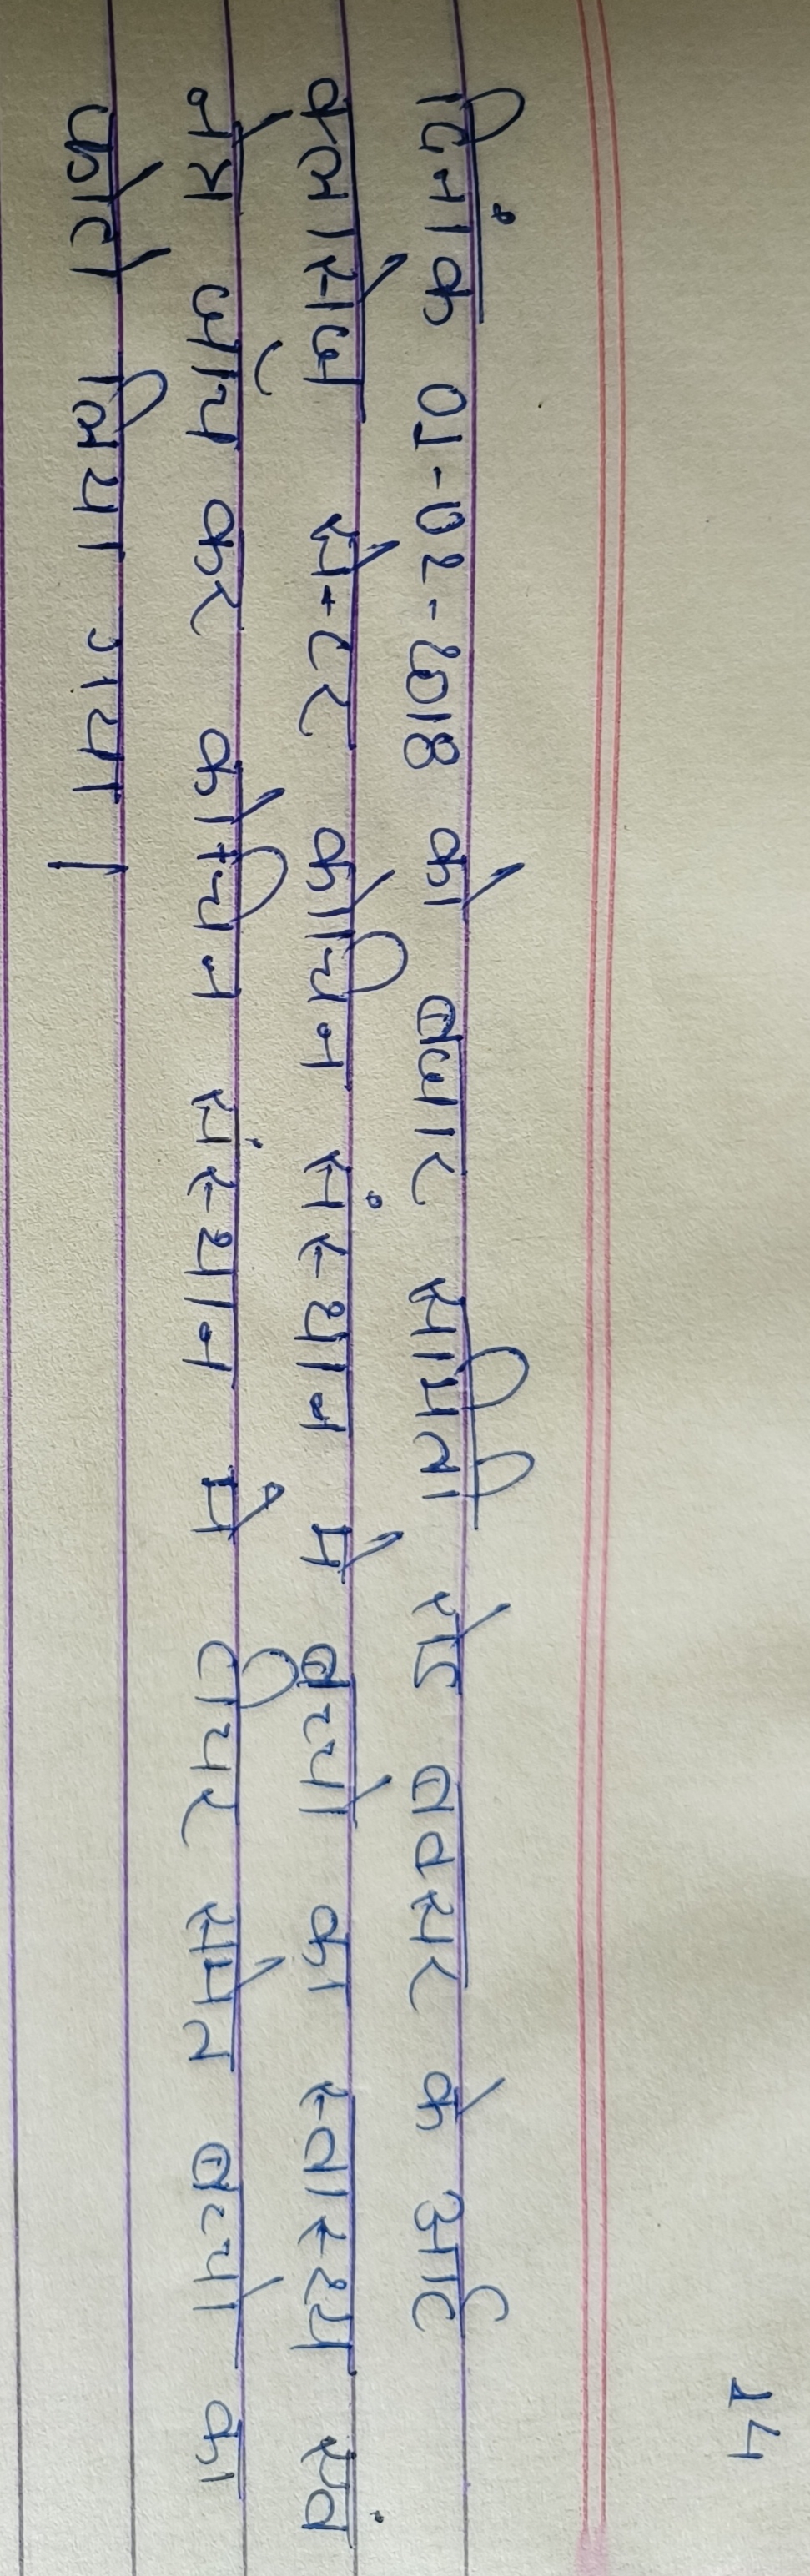 14
दिनांक 01-02-2018 को बजार समिती रोड बक्सर के आर्ट
क्लासेज सेन्टर कोचिन संस्थान मे बच्चो का स्वास्थ्य एवं
नेत्र जाँच कर कोचिन संस्थान मे टीचर समेत बच्चो का
फोटो लिया गया।